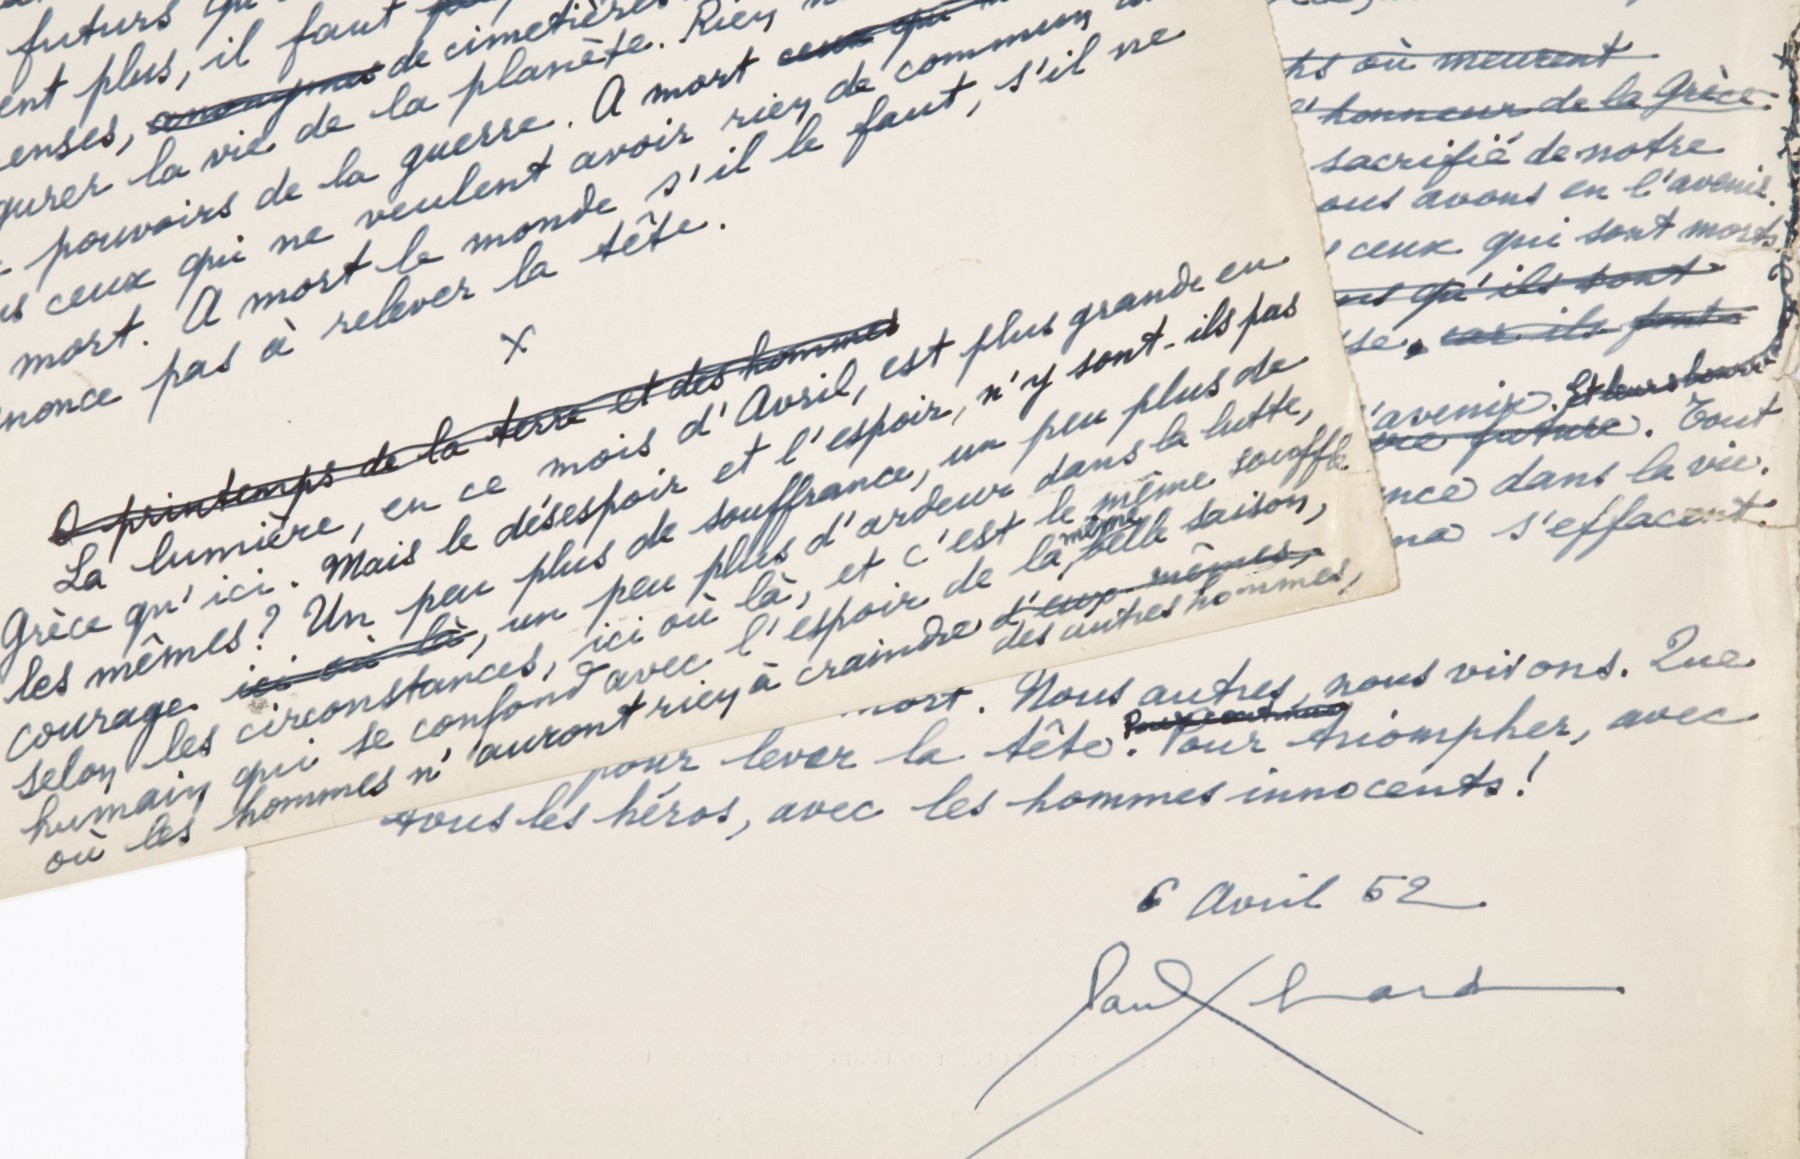 futurs qu
ent plus, il faut
enses, anonymes de cimetières
gurer la vie de la planète. Rien
pouvoirs de la guerre. A mort ceux qui
us ceux qui ne veulent avoir rien de commun
mort. A mort le monde s'il le faut, s'il ne
nonce pas à relever la tête.
x
O printemps de la terre et des hommes
La lumière, en ce mois d'Avril, est plus grande en
Grèce qu'ici. Mais le désespoir et l'espoir, n'y sont-ils pas
les mêmes? Un peu plus de souffrance, un peu plus de
courage ici ou là, un peu plus d'ardeur dans la lutte,
selon les circonstances, ici où là, et c'est le même souffle
humain qui se confond avec l'espoir de la même belle saison,
où les hommes n'auront rien à craindre d'eux-mêmes,
des autres hommes,
ts où meurent
l'honneur de la Grèce.
sacrifié de notre
ous avons en l'avenir.
ceux qui sont morts
us qu'ils sont
se. car ils font
l'avenir. Et leurs bourr
vie future. Tout
nce dans la vie.
na s'effacent.
mort. Nous autres, nous vivons. Que
Pour continuer
pour lever la tête. Pour triompher, avec
tous les héros, avec les hommes innocents!
6 Avril 52
Paul Eluard